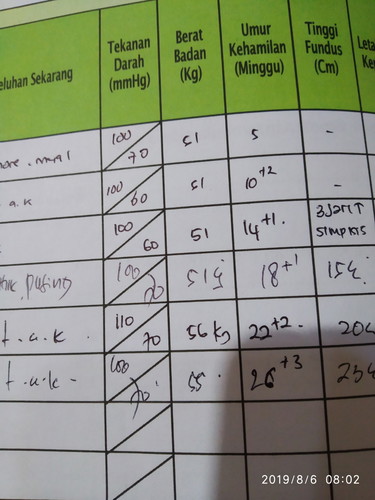 eluhan Sekarang
Tekanan Darah (mmHg)
Berat Badan (Kg)
Umur Kehamilan (Minggu)
Tinggi Fundus (Cm)
Leta
100/70 51 5 -
a.k 100/60 51 10+2 -
100/60 51 14+1. 3 Jari ↑ simpisis
pusing 100/70 51 18+1 15
t.a.k. 110/70 56 kg 22+2. 20
t.a.k- 100/70 55. 26+3 23
2019/8/6 08:02